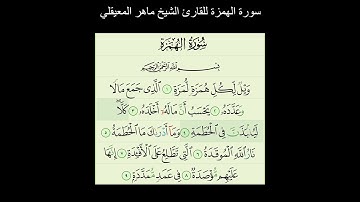 سورة الهمزة للقارئ الشيخ ماهر المعيقلي
سُورَةُ الهُمَزَةِ
بِسْمِ اللَّهِ الرَّحْمَٰنِ الرَّحِيمِ
وَيْلٌ لِّكُلِّ هُمَزَةٍ لُّمَزَةٍ ١ الَّذِي جَمَعَ مَالًا
وَعَدَّدَهُ ٢ يَحْسَبُ أَنَّ مَالَهُ أَخْلَدَهُ ٣ كَلَّا
لَيُنبَذَنَّ فِي الْحُطَمَةِ ٤ وَمَا أَدْرَاكَ مَا الْحُطَمَةُ ٥
نَارُ اللَّهِ الْمُوقَدَةُ ٦ الَّتِي تَطَّلِعُ عَلَى الْأَفْئِدَةِ ٧ إِنَّهَا
عَلَيْهِم مُّؤْصَدَةٌ ٨ فِي عَمَدٍ مُّمَدَّدَةٍ ٩